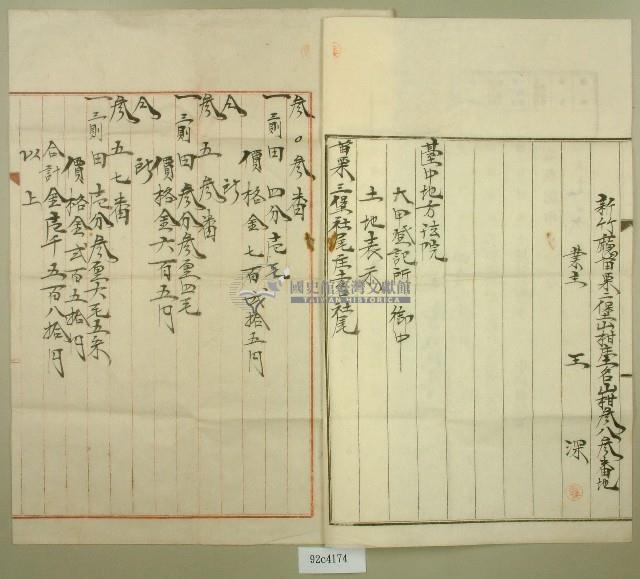 新竹廳苗栗三堡山柑庄土名山柑參八參番地
業主　王　深
臺中地方法院
大甲登記所　御中
土地表示
苗栗三堡社尾庄土名社尾
參〇參番
一三則田　四分壱毛
價格金七百弐拾五円
仝所
參五參番
一三則田　參分參厘四毛
價格金六百五円
仝所
參五七番
一三則田　壱分參厘六毛五糸
價格金弐百五拾円
合計金壱千五百八拾円
以上
國史館臺灣文獻館
TAIWAN HISTORICA
92c4174